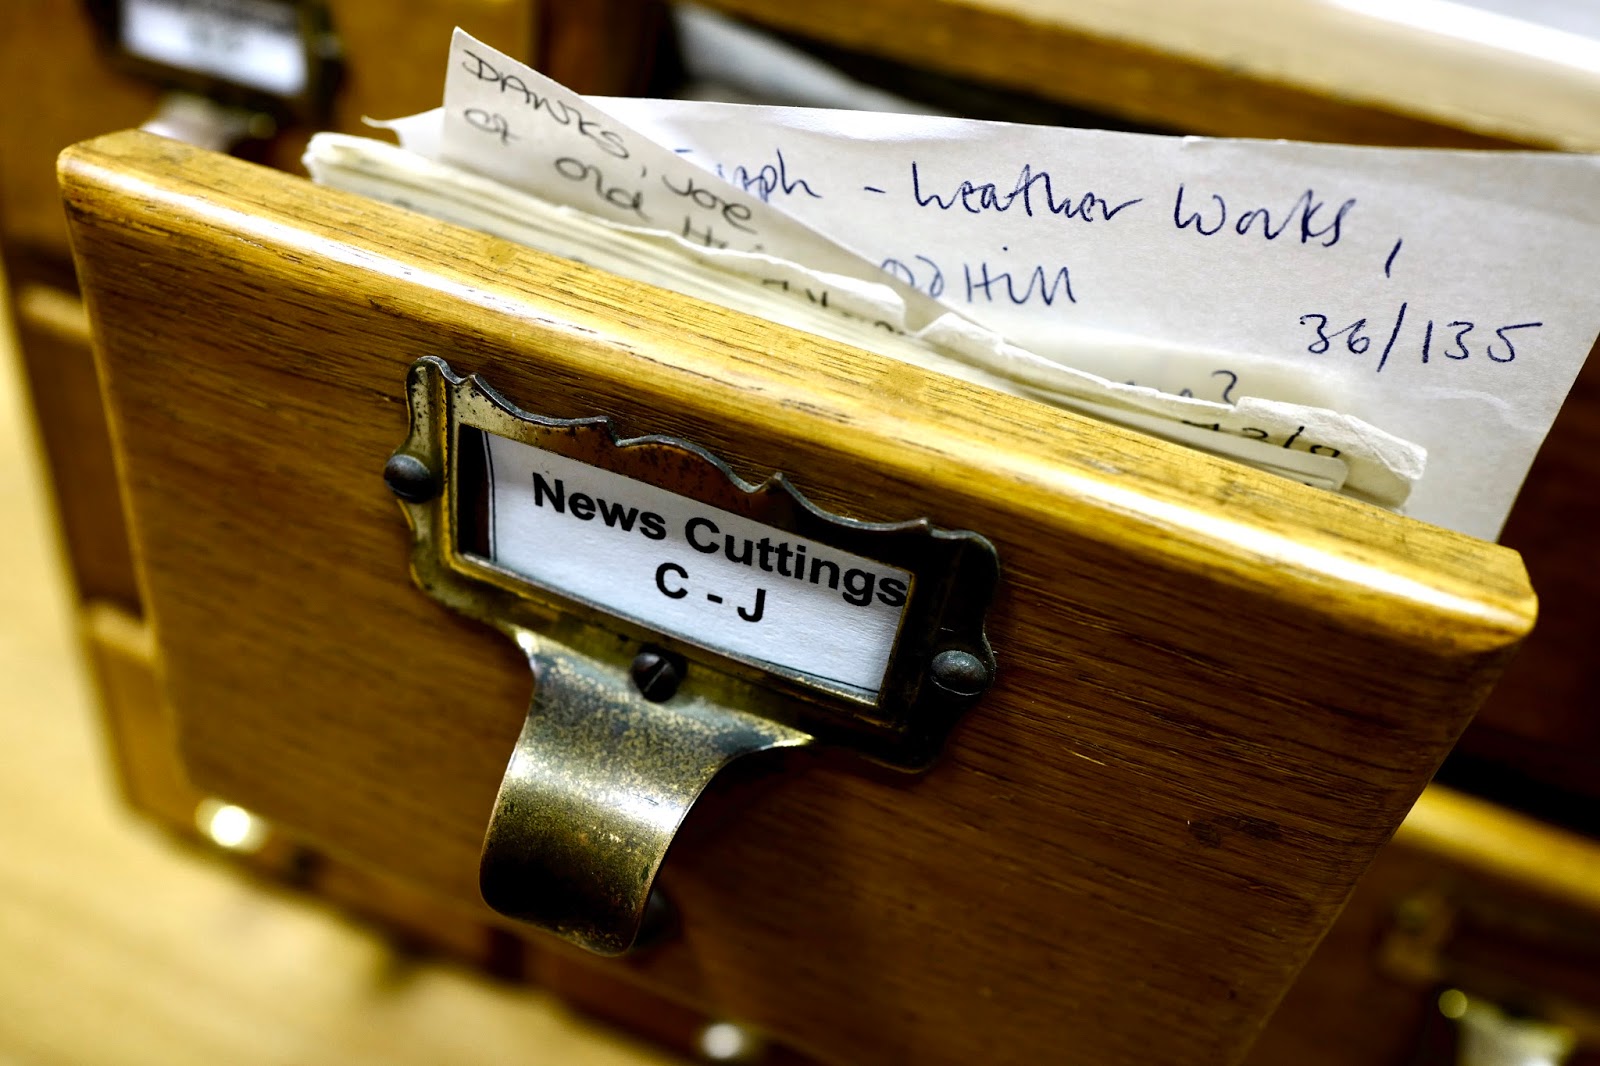 DANKS, Joe
of Old
- Leather Works,
Hill
36/135
News Cuttings
C - J